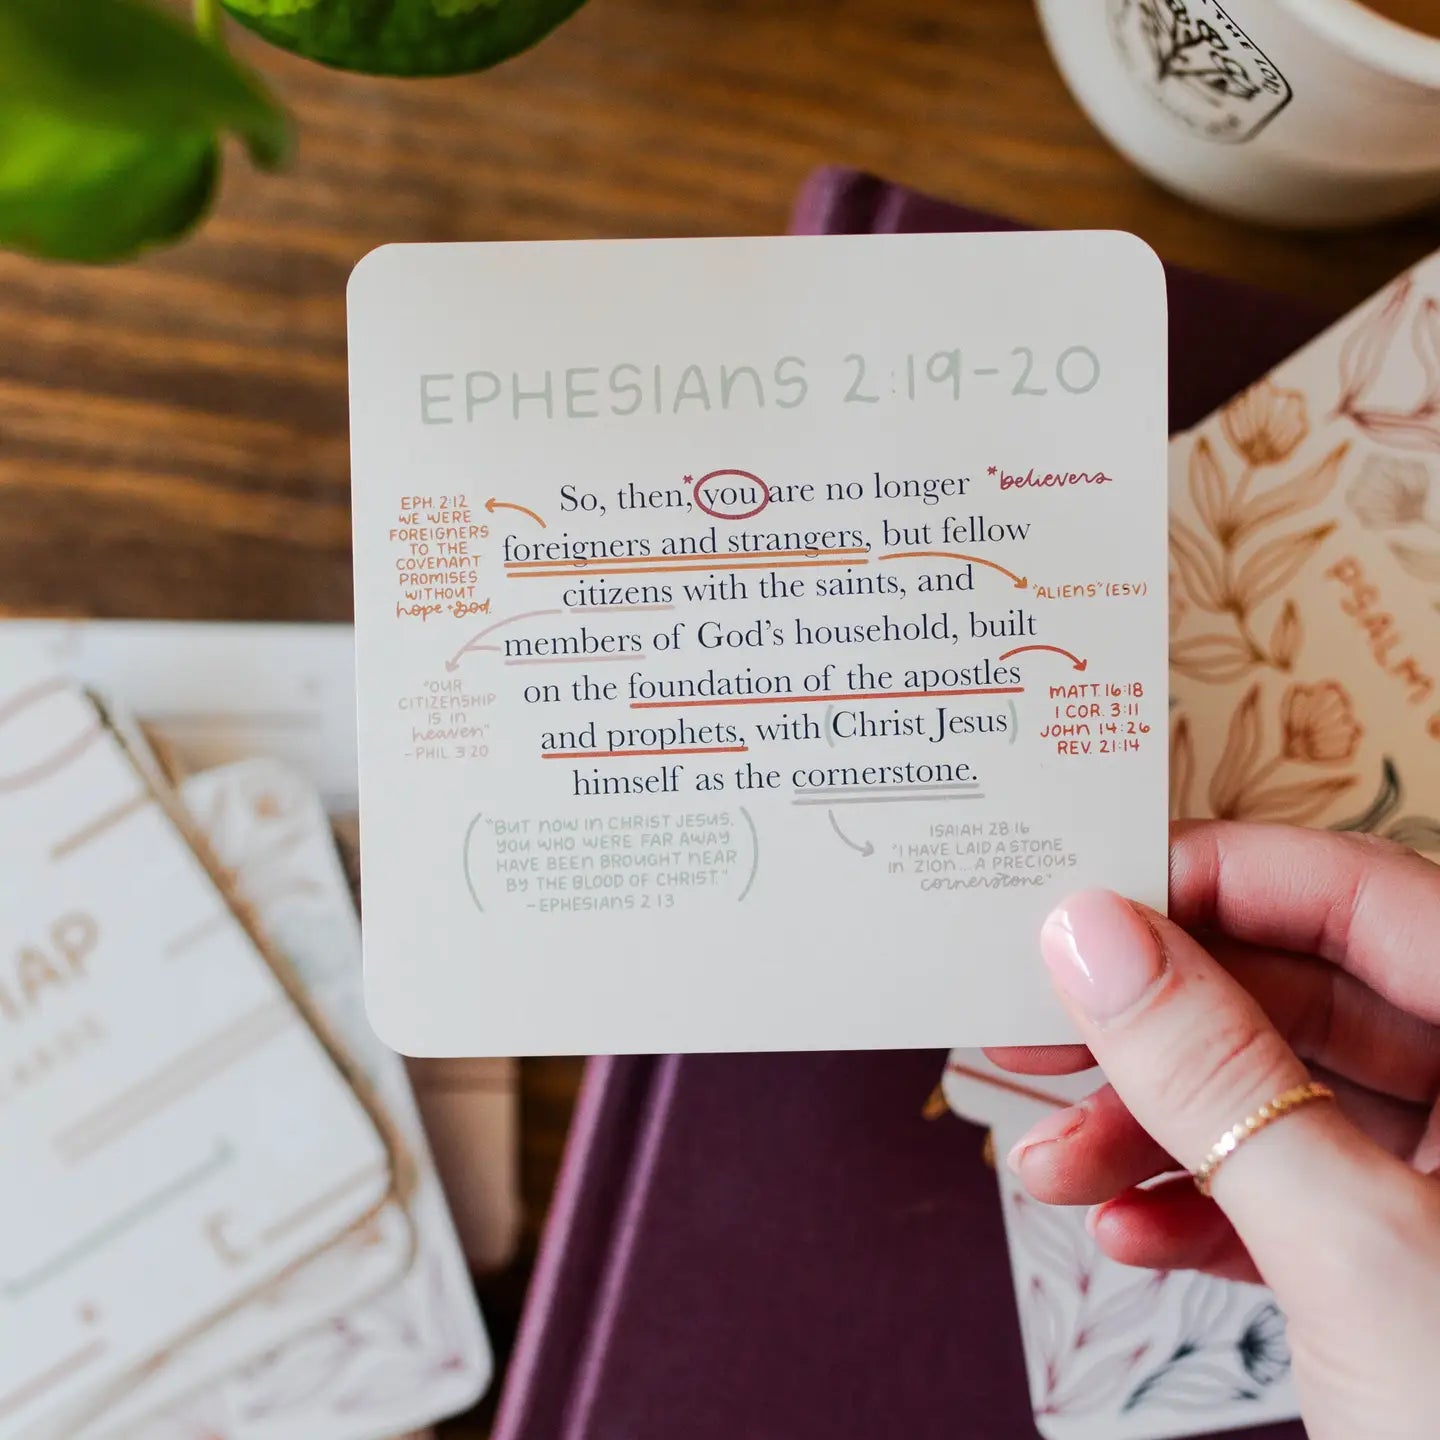 THE LOR
EPHESIANS 2:19-20
So, then,* you are no longer *believers
foreigners and strangers, but fellow
citizens with the saints, and
members of God's household, built
on the foundation of the apostles
and prophets, with (Christ Jesus)
himself as the cornerstone.
EPH. 2:12
WE WERE
FOREIGNERS
TO THE
COVENANT
PROMISES
WITHOUT
hope + God.
"ALIENS" (ESV)
"OUR
CITIZENSHIP
IS in
heaven"
-PHIL 3:20
MATT. 16:18
1 COR. 3:11
JOHN 14:26
REV. 21:14
("BUT NOW IN CHRIST JESUS,
YOU WHO WERE FAR AWAY
HAVE BEEN BROUGHT NEAR
BY THE BLOOD OF CHRIST."
-EPHESIANS 2:13)
ISAIAH 28:16
"I HAVE LAID A STONE
in ZION...A PRECIOUS
cornerstone"
PSALM
MAP